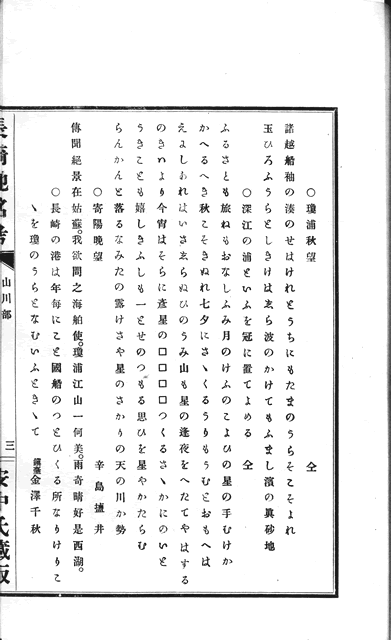 ○瓊浦秋望　仝
諸越船秞の湊のせはけれとうちにもたまのうらそこそよれ
玉ひろふうらとしきけはゑら波のかけてもふまし濱の眞砂地
○深江の浦といふを冠に置てよめる　仝
ふるさとも旅ねもおなしふみ月のけふのこよひの星の手むけか
かへるへき秋こそきぬれ七夕にさゝくるうりもうむとおもへは
えよしあれはいさゑらぬひのうみ山も星の逢夜をへたてやはする
のきいより今宵はそらに彦星の□□□□つくるさゝかにのいと
うきことも嬉しきふしも一とせのつもる思ひを星やかたらむ
らんかんと落るなみたの露けさや星のさかりの天の川か勢
○寄陽晩望　辛島搵井
傳聞絕景在姑蘇。我欲問之海舶使。瓊浦江山一何美。雨奇晴好是西湖。
○長崎の港は年每にこと國船のつとひくる所なりけりこ
ゝを瓊のうらとなむいふときゝて
鎭臺金澤千秋
長崎地名考
山川部
三
安中氏藏版